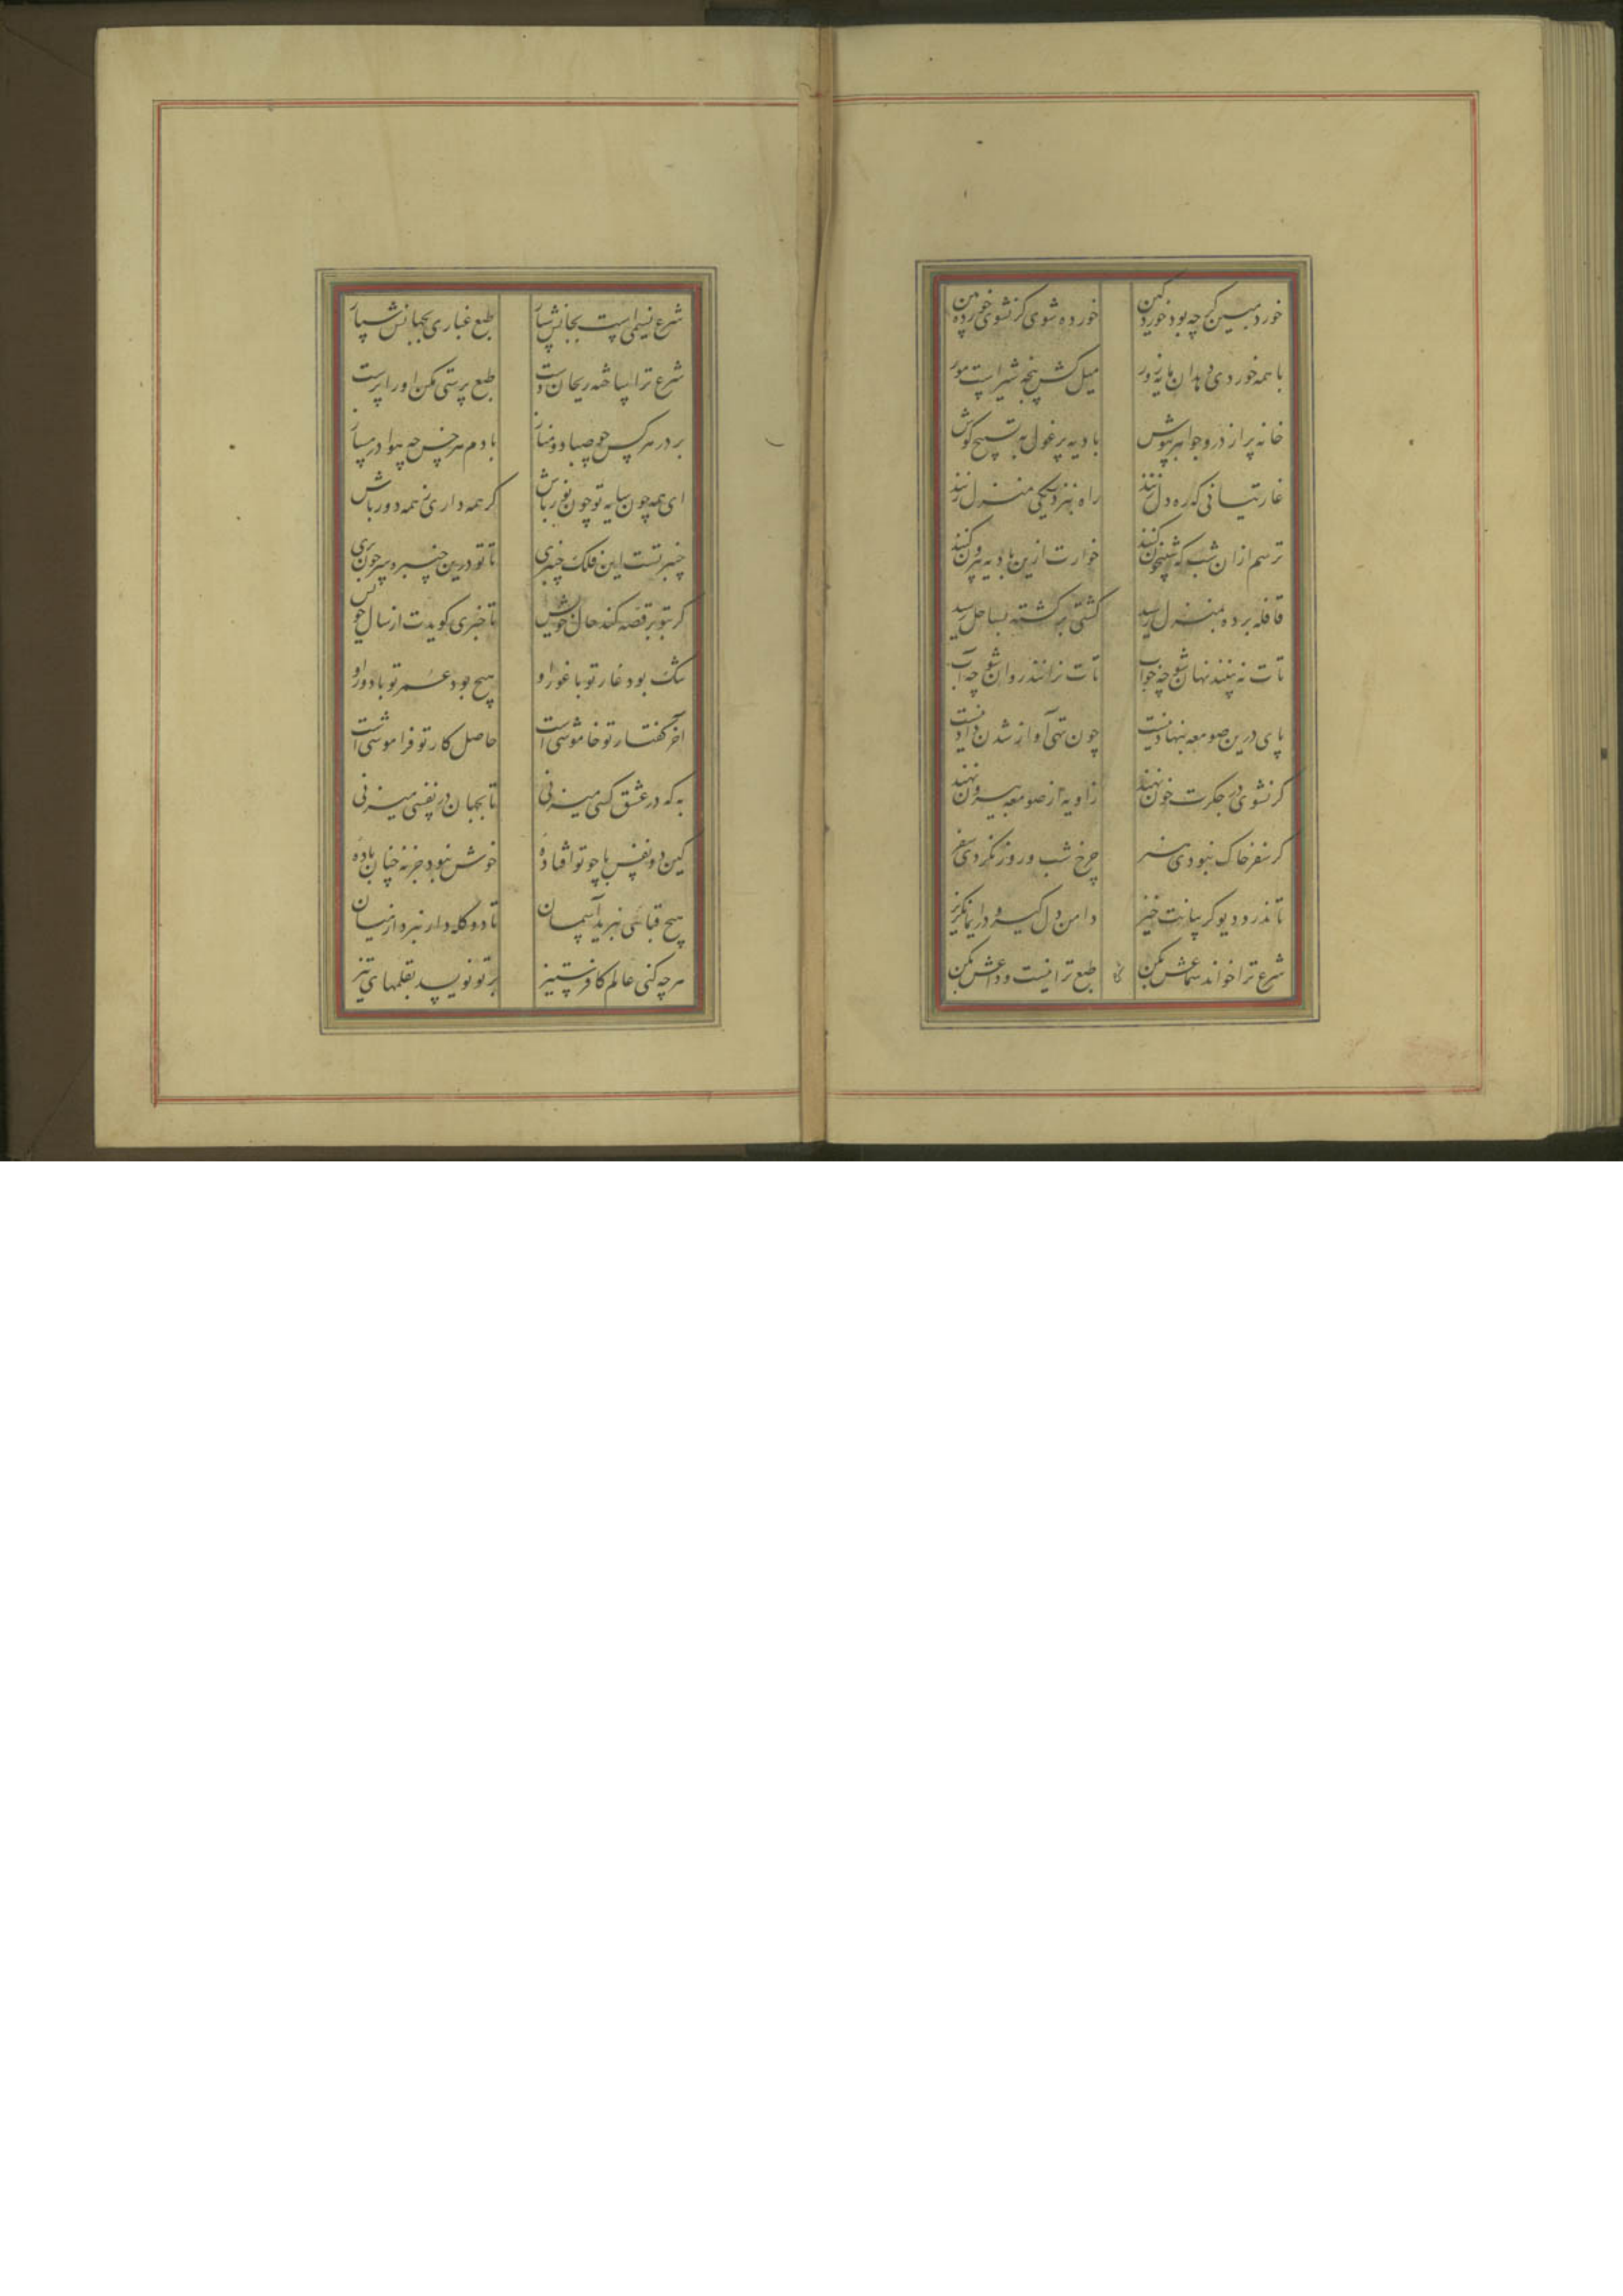 خورد مبین کرچه بود خورد کین خورده شوی کر نشوی خورده بین
با همه خوردی مایه زور میل کش پنجه شیر است مور
خانه پر از در و جواهر بپوش بادیه پر غول به تسبیح کوش
غارتیانی که ره دل زنند راه بنزدیکی منزل زنند
ترسم ازان شب که شبیخون کنند خوارت ازین بادیه بیرون کنند
قافله برده بمنزل رسید کشتی پر کشته بساحل رسید
تات نه بینند نهان شو چه خواب تات نرانند روان شو چه آب
پای درین صومعه ننهادنیست چون تهی آواز شدن دادنیست
کر نشوی در جکرت خون نهند زاویه از صومعه بیرون نهند
کر سفر خاک نبودی هنر چرخ شب و روز نکردی سفر
تا ندرد دیو کریبانت خیز دامن دل کیر و در ایمان کریز
شرع ترا خواند سماعش بکن طبع ترا نیست وداعش بکن
شرع نسیمی است بجانش سپار طبع غباری بجهانش سپار
شرع ترا ساخته ریحان دست طبع پرستی مکن او را پرست
بر در هر کس چو صبا دو متاز با دم هر خس چه هوا در مساز
ای همه چون سایه تو چون نور باش کر همه داری ز همه دور باش
چنبر تست این فلک چنبری تا تو درین چنبره سر چون بری
کر بتو بر قصه کند حال خویش تا خبری کویدت از سال خویش
تنک بود غار تو با غور او هیچ بود عمر تو با دور او
آخر کفتار تو خاموشی است حاصل کار تو فراموشی است
به که در عشق کسی میزنی تا بجهان در نفسی میزنی
کین دو نفس با چو تو افتاده خوش نبود جز نه چنان باده
هیچ قبائی نبرید آسمان تا دو کله وار نبرد از میان
هرچه کنی عالم کافر ستیز بر تو نویسد بقلمهای تیز